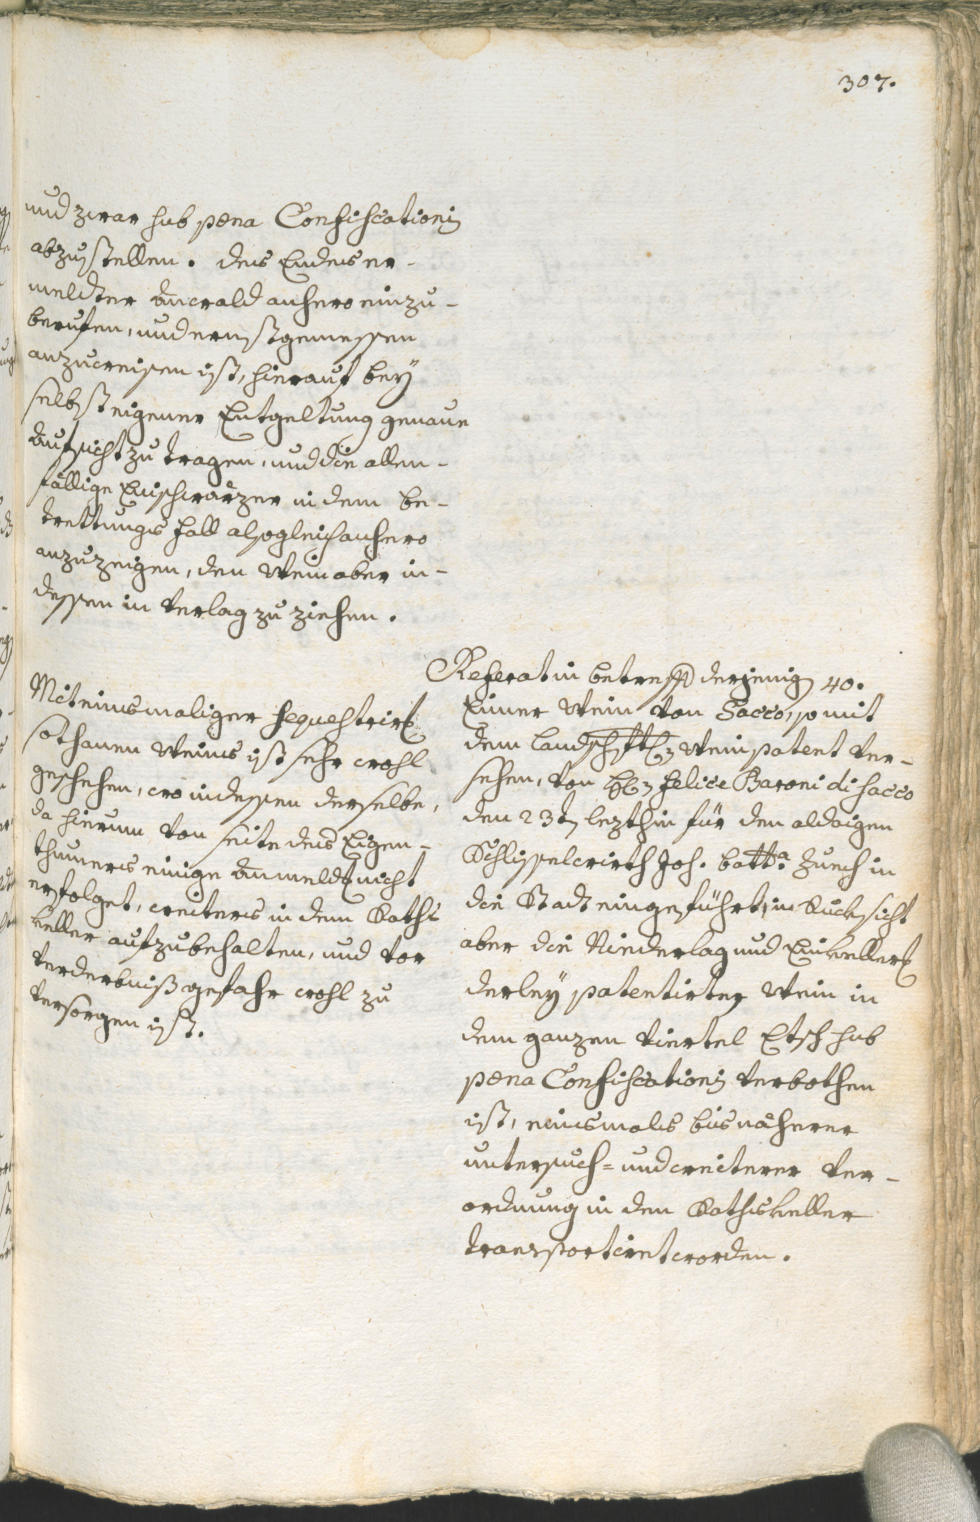 307.
und zwar sub pœna Confiscationis
abzustellen. des Endes er-
meldter Anwald anhero einzu-
berufen, und ernstgemessen
anzuweisen ist, hierauf beÿ
selbst eigener Entgeltung genaue
Aufsicht zu tragen, und die allen-
fällige Einschwärzer in dem be-
trettungs fall alsogleich anhero
anzuzeigen, den Wein aber in-
dessen in Verlag zu ziehen.
Mit einsmaliger sequestrirg
sothanen Weins ist sehr wohl
geschehen, wo indessen derselbe,
da hierum von seite des Eigen-
thumers einige Anmeldg nicht
erfolget, weiters in dem Raths
keller aufzubehalten, und vor
verderbniß gefahr wohl zu
versorgen ist.
Referat in betreff derjenig 40.
Eimer Wein von Sacco, so mit
dem landschftl. Weinpatent ver-
sehen, von H. Felice Baroni di Sacco
den 23t lezthin für den aldaigen
Schlisselwirth Joh. Batta Zuech in
die Stadt eingeführt, in Rucksicht
aber die Niederlag und Einkellerg
derleÿ patentirter Wein in
dem ganzen Viertel Etsch sub
pœna Confiscationis verbothen
ist, einsmals bis näherer
untersuch- und weiterer Ver-
ordnung in den Rathskeller
transportiret worden.